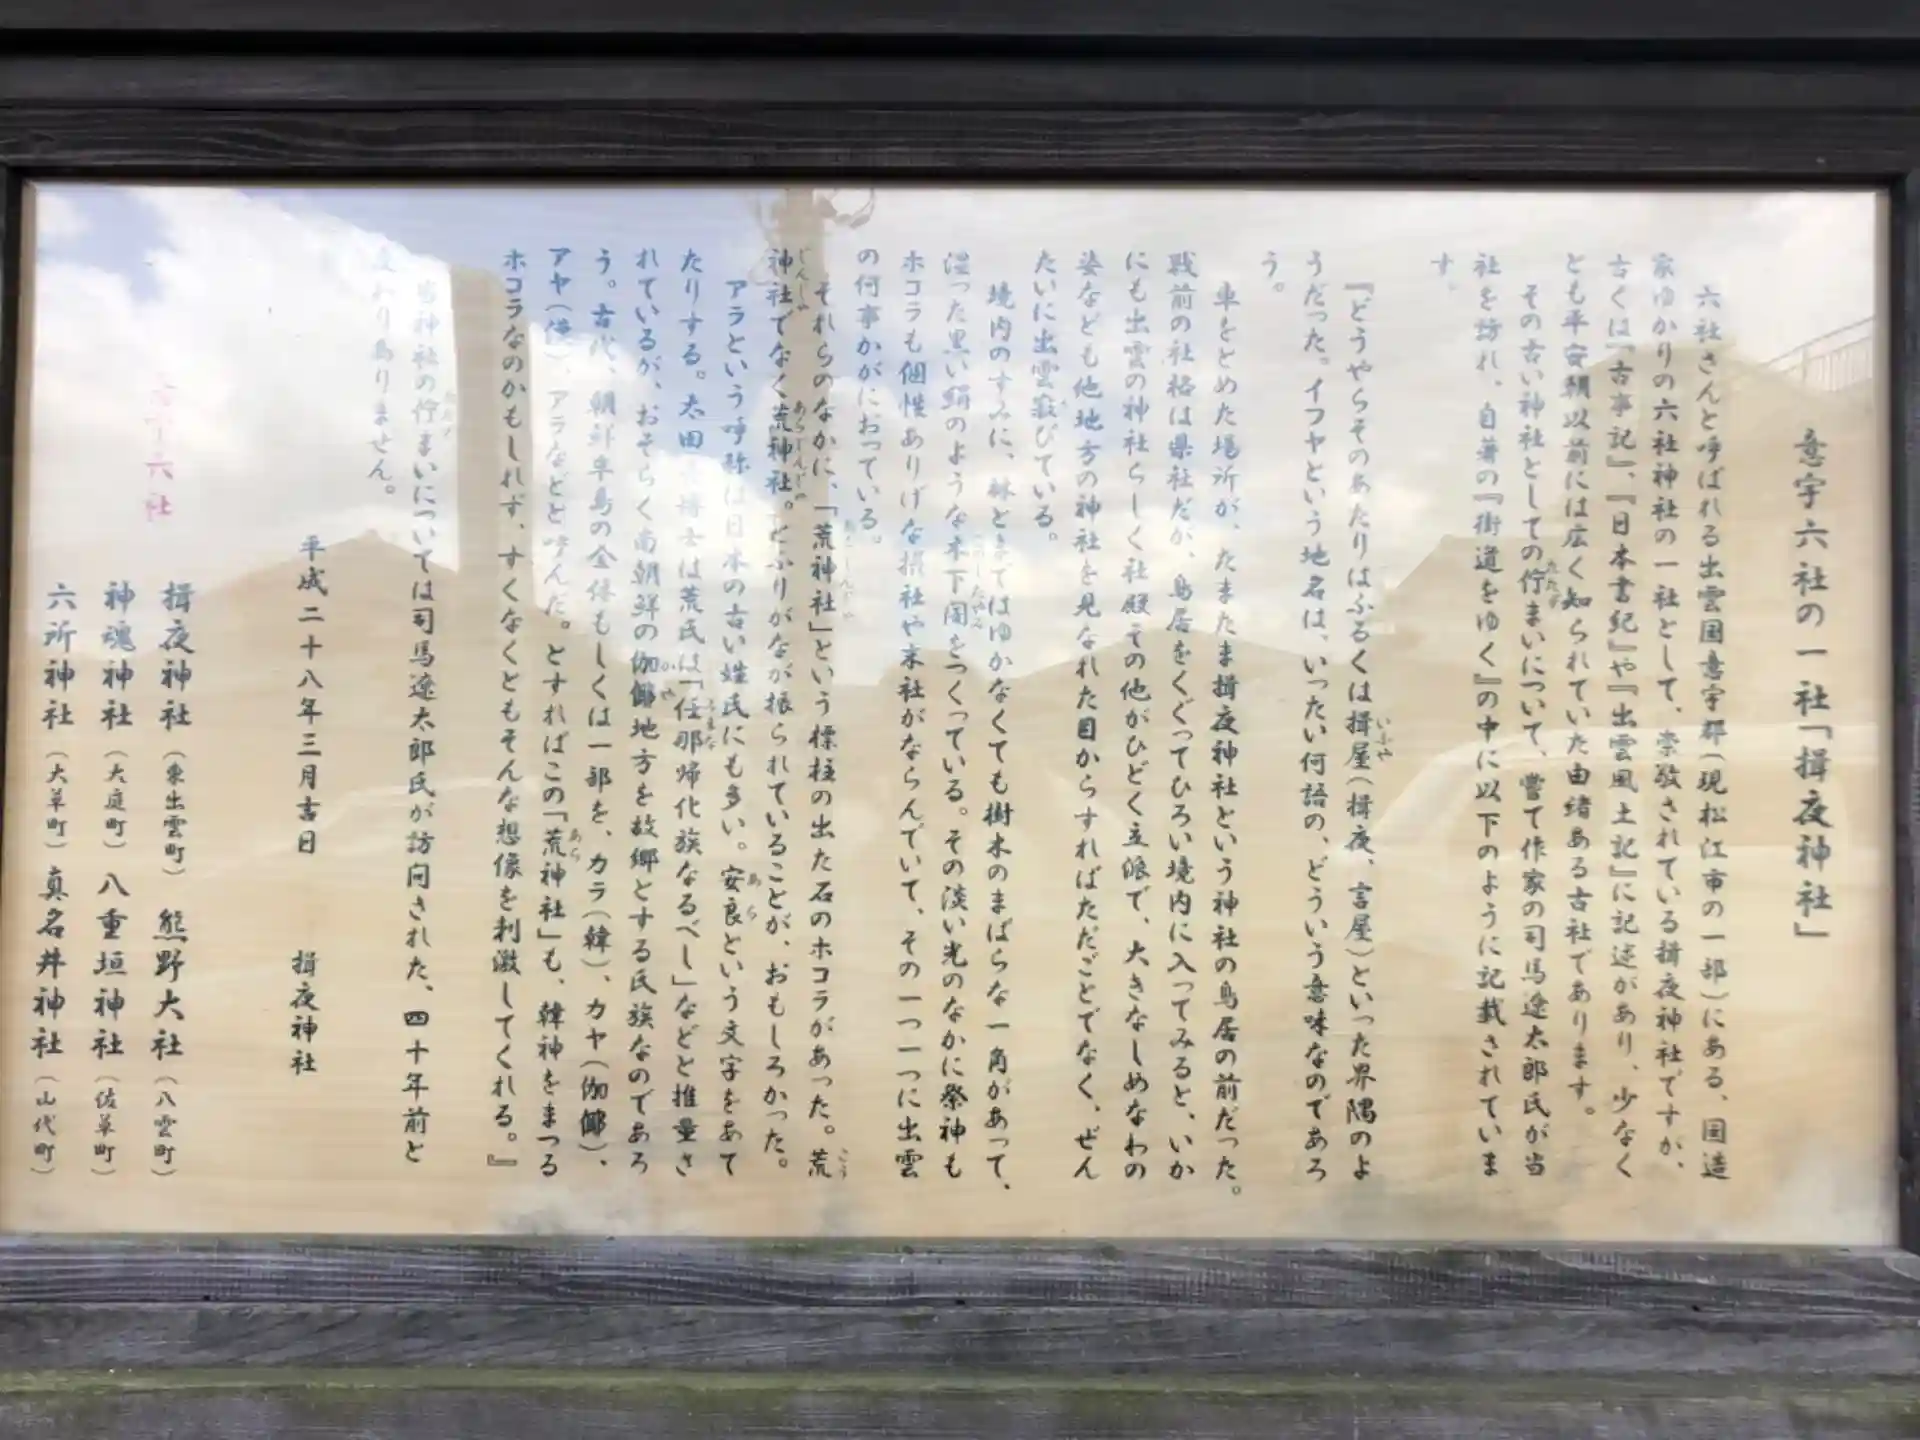 意宇六社の一社「揖夜神社」
六社さんと呼ばれる出雲国意宇郡(現松江市の一部)にある、国造
家ゆかりの六社神社の一社として、崇敬されている揖夜神社ですが、
古くは『古事記』、『日本書紀』や『出雲風土記』に記述があり、少なく
とも平安朝以前には広く知られていた由緒ある古社であります。
その古い神社としての佇まいについて、嘗て作家の司馬遼太郎氏が当
社を訪れ、自著の『街道をゆく』の中に以下のように記載されていま
す。
『どうやらそのあたりはふるくは揖屋(揖夜、言屋)といった界隈のよ
うだった。イフヤという地名は、いったい何語の、どういう意味なのであろ
う。
車をとめた場所が、たまたま揖夜神社という神社の鳥居の前だった。
戦前の社格は県社だが、鳥居をくぐってひろい境内に入ってみると、いか
にも出雲の神社らしく社殿その他がひどく立派で、大きなしめなわの
姿なども他地方の神社を見なれた目からすればただごとでなく、ぜん
たいに出雲寂びている。
境内のすみに、林とまではゆかなくても樹木のまばらな一角があって、
湿った黒い絹のような木下闇をつくっている。その淡い光のなかに祭神も
ホコラも個性ありげな摂社や末社がならんでいて、その一つ一つに出雲
の何事かがにおっている。
それらのなかに、「荒神社」という標柱の出た石のホコラがあった。荒
神社でなく荒神社。とふりがなが振られていることが、おもしろかった。
アラという呼称は日本の古い姓氏にも多い。安良という文字をあて
たりする。太田 博士は荒氏は「任那帰化族なるべし」などと推量さ
れているが、おそらく南朝鮮の伽耶地方を故郷とする氏族なのであろ
う。古代、朝鮮半島の全体もしくは一部を、カラ(韓)、カヤ(伽耶)、
アヤ(漢)、アラなどと呼んだ。とすればこの「荒神社」も、韓神をまつる
ホコラなのかもしれず、すくなくともそんな想像を刺激してくれる。』
当神社の佇まいについては司馬遼太郎氏が訪問された、四十年前と
変わり為りません。
平成二十八年三月吉日 揖夜神社
六社
揖夜神社(東出雲町) 熊野大社(八雲町)
神魂神社(大庭町) 八重垣神社(佐草町)
六所神社(大草町) 真名井神社(山代町)